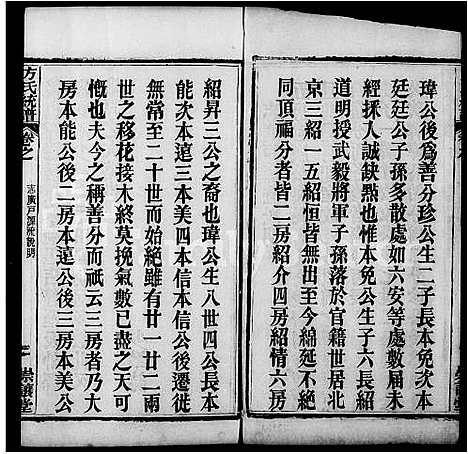 瑋公後爲善分珍公生二子長本免次本
廷廷公子孫多散處如六安等處數届未
經採入誠缺點也惟本免公生子六長紹
道明授武毅將軍子孫落於官籍世居北
京三紹一五紹恒皆無出至今綿延不絶
同頂福分者皆二房紹介四房紹情六房
紹昇三公之裔也瑋公生八世四公長本
能次本遠三本美四本信本信公後遷徙
無常至二十世而始絶雖有廿一廿二兩
世之移花接木終莫挽氣數已盡之天可
慨也夫今之稱善分而祇云三房者乃大
房本能公後二房本遠公後三房本美公
方氏統譜
卷之
志廣戶源流説明
崇讓堂